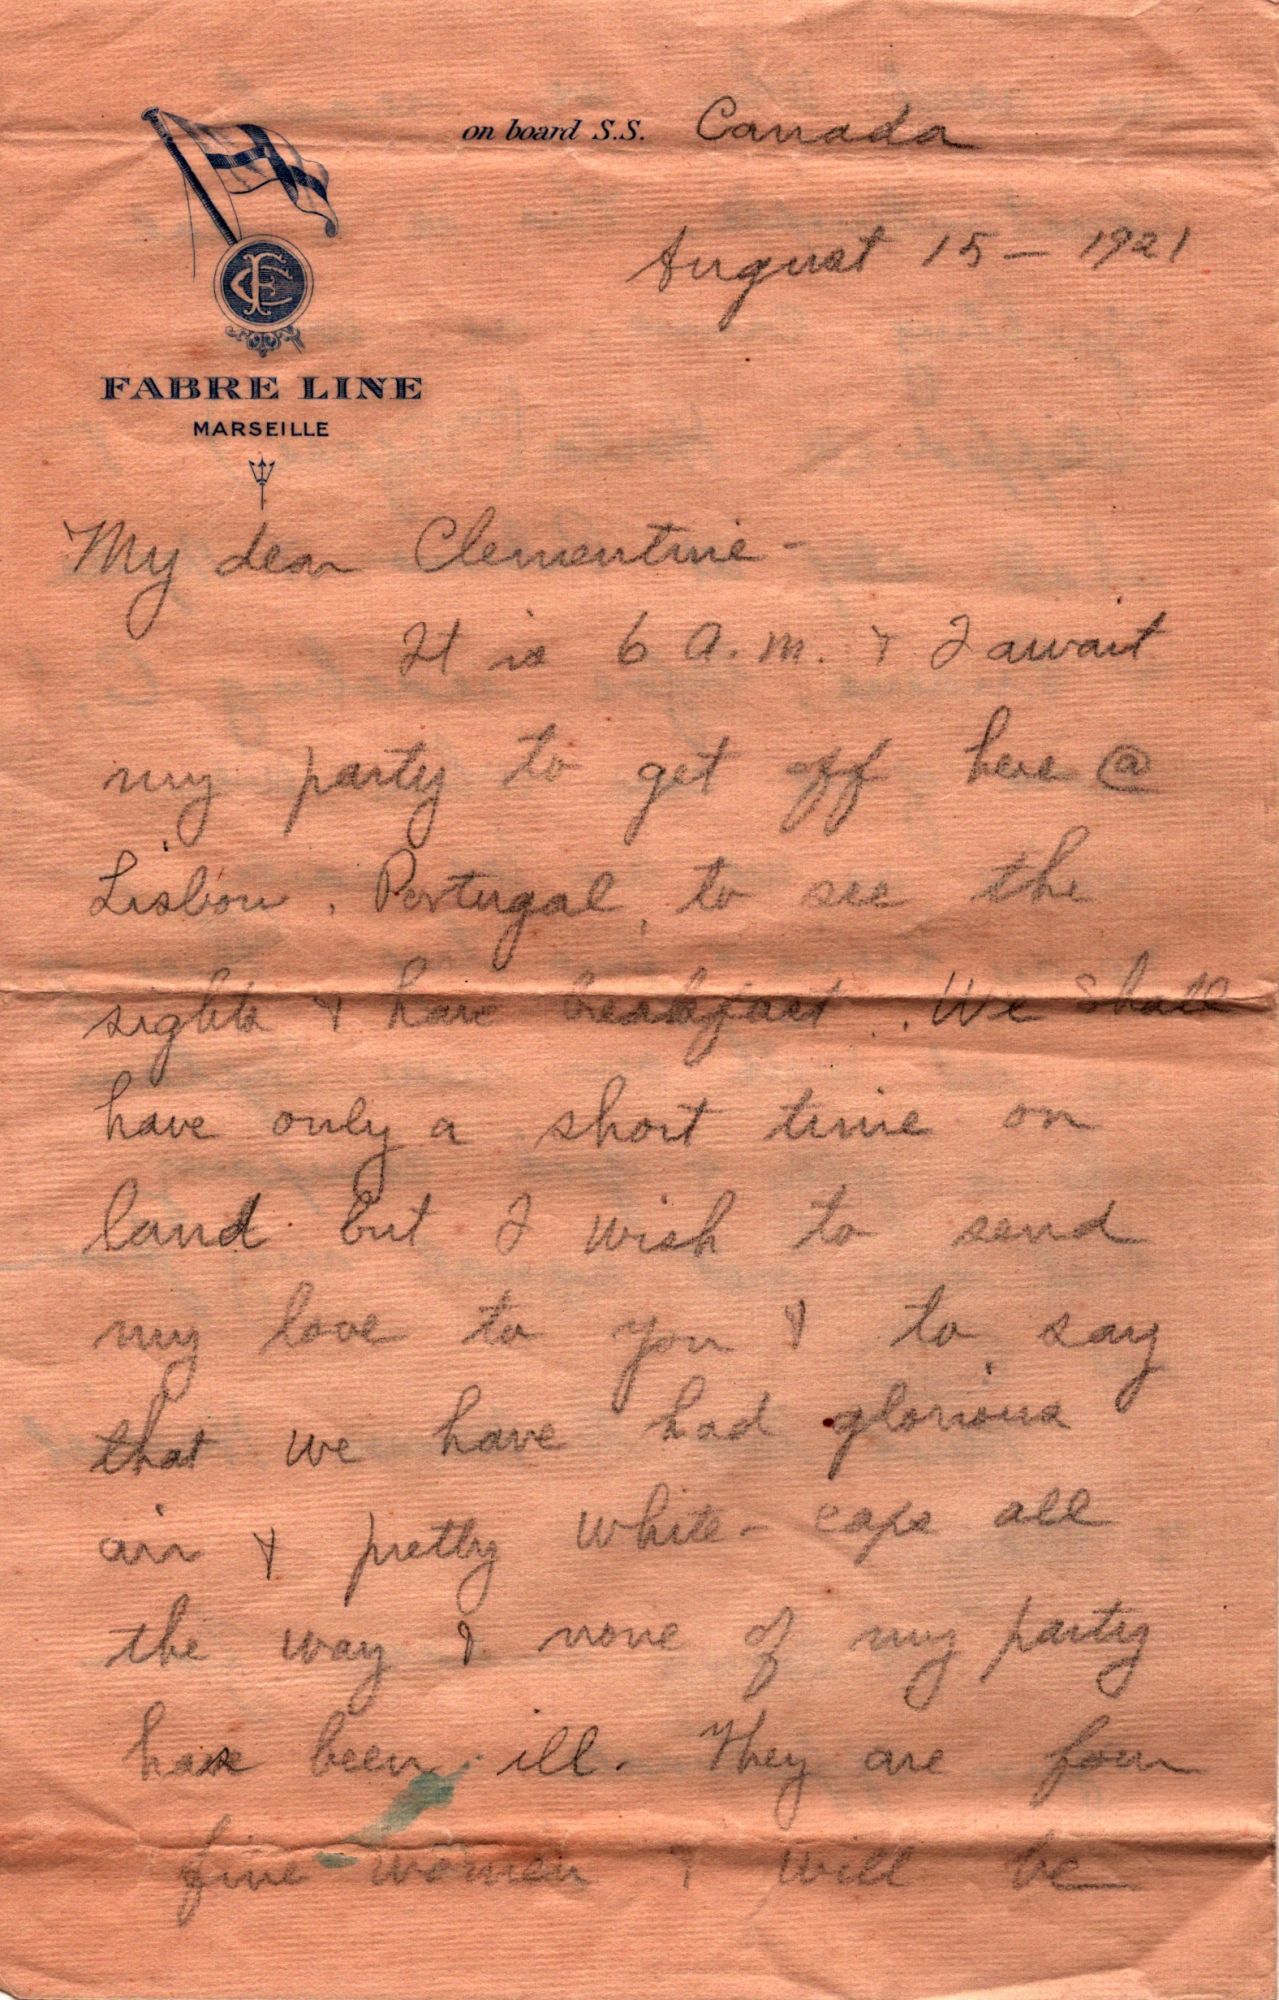 on board S.S. Canada
August 15 – 1921
CF
FABRE LINE
MARSEILLE
My dear Clementine –
It is 6 a.m. & I await
my party to get off here @
Lisbon, Portugal, to see the
sights & have breakfast. We shall
have only a short time on
land but I wish to send
my love to you & to say
that we have had glorious
air & pretty white-caps all
the way & none of my party
has been ill. They are four
fine women & will be